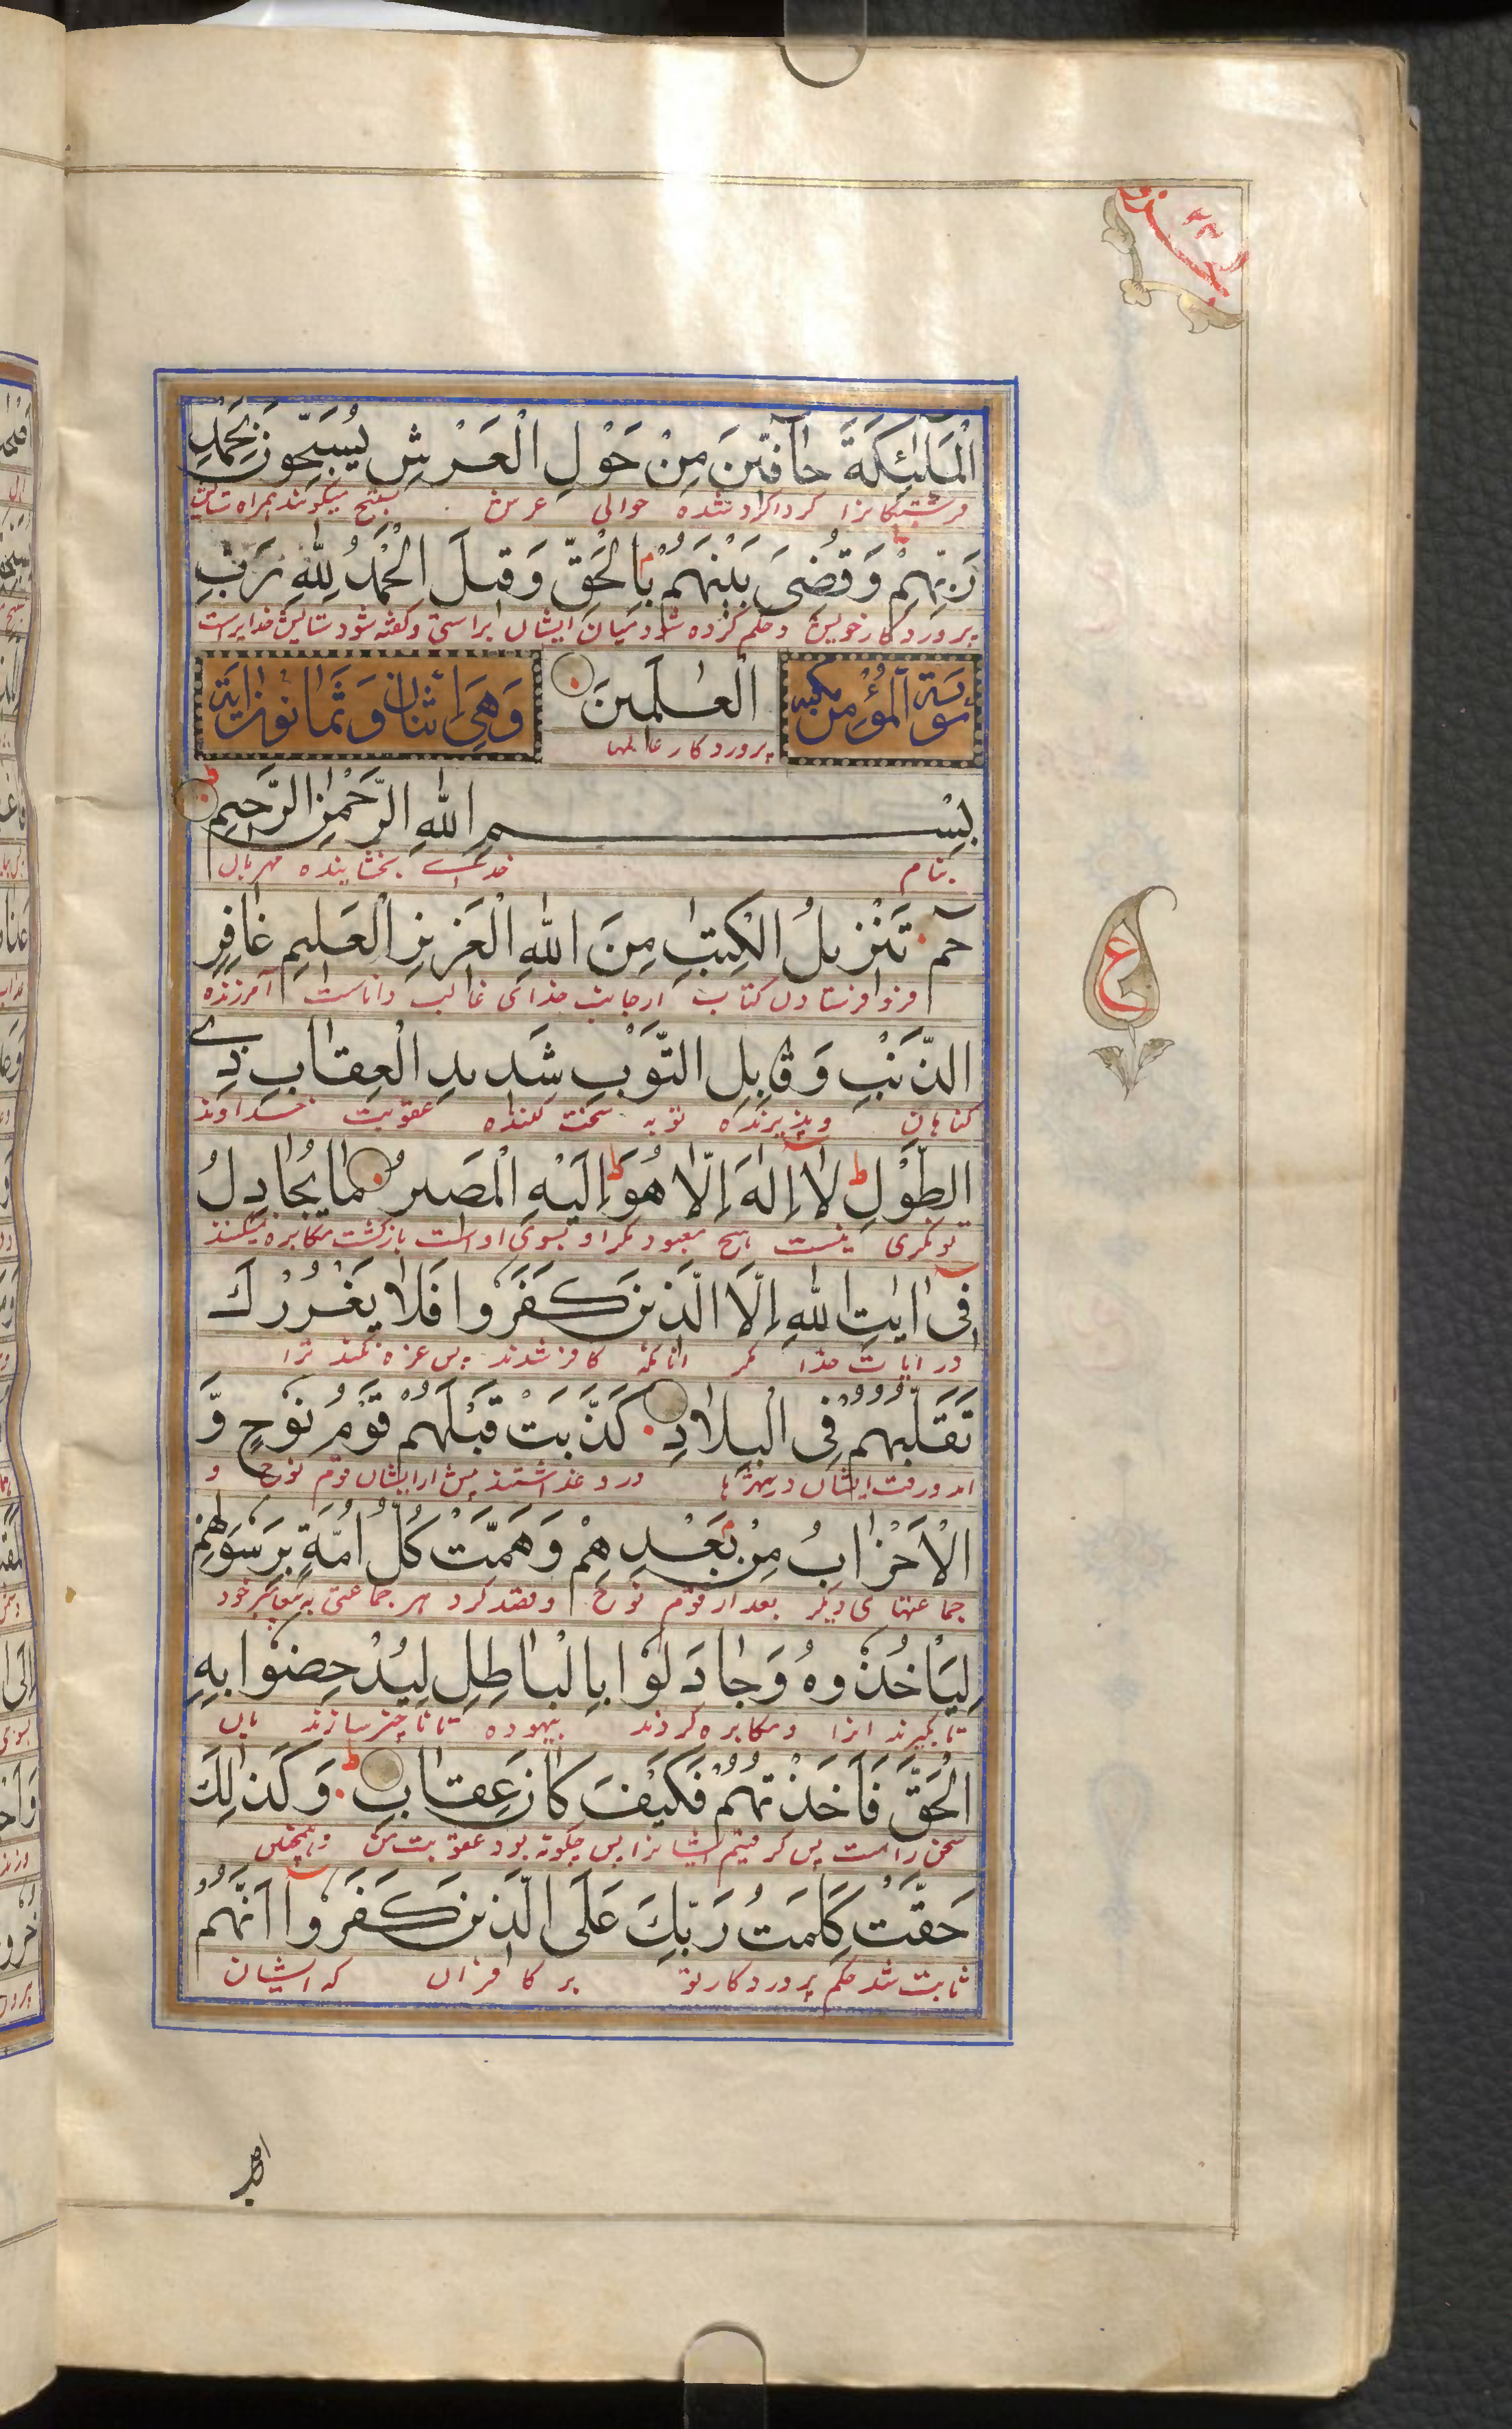 الْمَلٰٓئِكَةَ حَآفِّينَ مِنْ حَوْلِ الْعَرْشِ يُسَبِّحُونَ بِحَمْدِ
فرشتگانرا گرداگرد شده حوالی عرش تسبیح میگویند همراه ستایش
رَبِّهِمْ وَقُضِىَ بَيْنَهُمْ بِالْحَقِّ وَقِيلَ الْحَمْدُ لِلّٰهِ رَبِّ
پروردگار خویش و حکم کرده شود میان ایشان براستی و گفته شود ستایش خدایراست
سُورَة الْمُؤْمِن مكية
الْعٰلَمِينَ
وَهِىَ اثْنَان وَثَمَانُونَ اٰيَة
پروردگار عالمها
بِسْمِ اللّٰهِ الرَّحْمٰنِ الرَّحِيمِ
بنام خدای بخشاینده مهربان
حٰمٓ تَنْزِيلُ الْكِتٰبِ مِنَ اللّٰهِ الْعَزِيزِ الْعَلِيمِ غَافِرِ
فرو فرستادن کتاب از جانب خدای غالب داناست آمرزنده
الذَّنْبِ وَقَابِلِ التَّوْبِ شَدِيدِ الْعِقَابِ ذِى
گناهان و پذیرنده توبه سخت کننده عقوبت خداوند
الطَّوْلِ ط لَآ اِلٰهَ اِلَّا هُوَ ط اِلَيْهِ الْمَصِيرُ مَا يُجَادِلُ
توانگری نیست هیچ معبود مگر او بسوی اوست بازگشت مکابره نمیکنند
فِىٓ اٰيٰتِ اللّٰهِ اِلَّا الَّذِينَ كَفَرُوا فَلَا يَغْرُرْكَ
در ایات خدا مگر انانکه کافر شدند پس غره نکند ترا
تَقَلُّبُهُمْ فِى الْبِلَادِ كَذَّبَتْ قَبْلَهُمْ قَوْمُ نُوحٍ وَّ
امد و رفت ایشان در شهرها دروغ داشتند پیش از ایشان قوم نوح و
الْاَحْزَابُ مِنْ بَعْدِهِمْ وَهَمَّتْ كُلُّ اُمَّةٍ بِرَسُولِهِمْ
جماعتهای دیگر بعد از قوم نوح و قصد کرد هر جماعتی به پیغامبر خود
لِيَأْخُذُوهُ وَجَادَلُوا بِالْبَاطِلِ لِيُدْحِضُوا بِهِ
تا بگیرند انرا و مکابره کردند بیهوده تا ناچیز سازند بان
الْحَقَّ فَاَخَذْتُهُمْ فَكَيْفَ كَانَ عِقَابِ ط وَكَذٰلِكَ
سخن راست پس گرفتیم ایشانرا پس چگونه بود عقوبت من و همچنین
حَقَّتْ كَلِمَتُ رَبِّكَ عَلَى الَّذِينَ كَفَرُوٓا اَنَّهُمْ
ثابت شد حکم پروردگار تو بر کافران که ایشان
ع